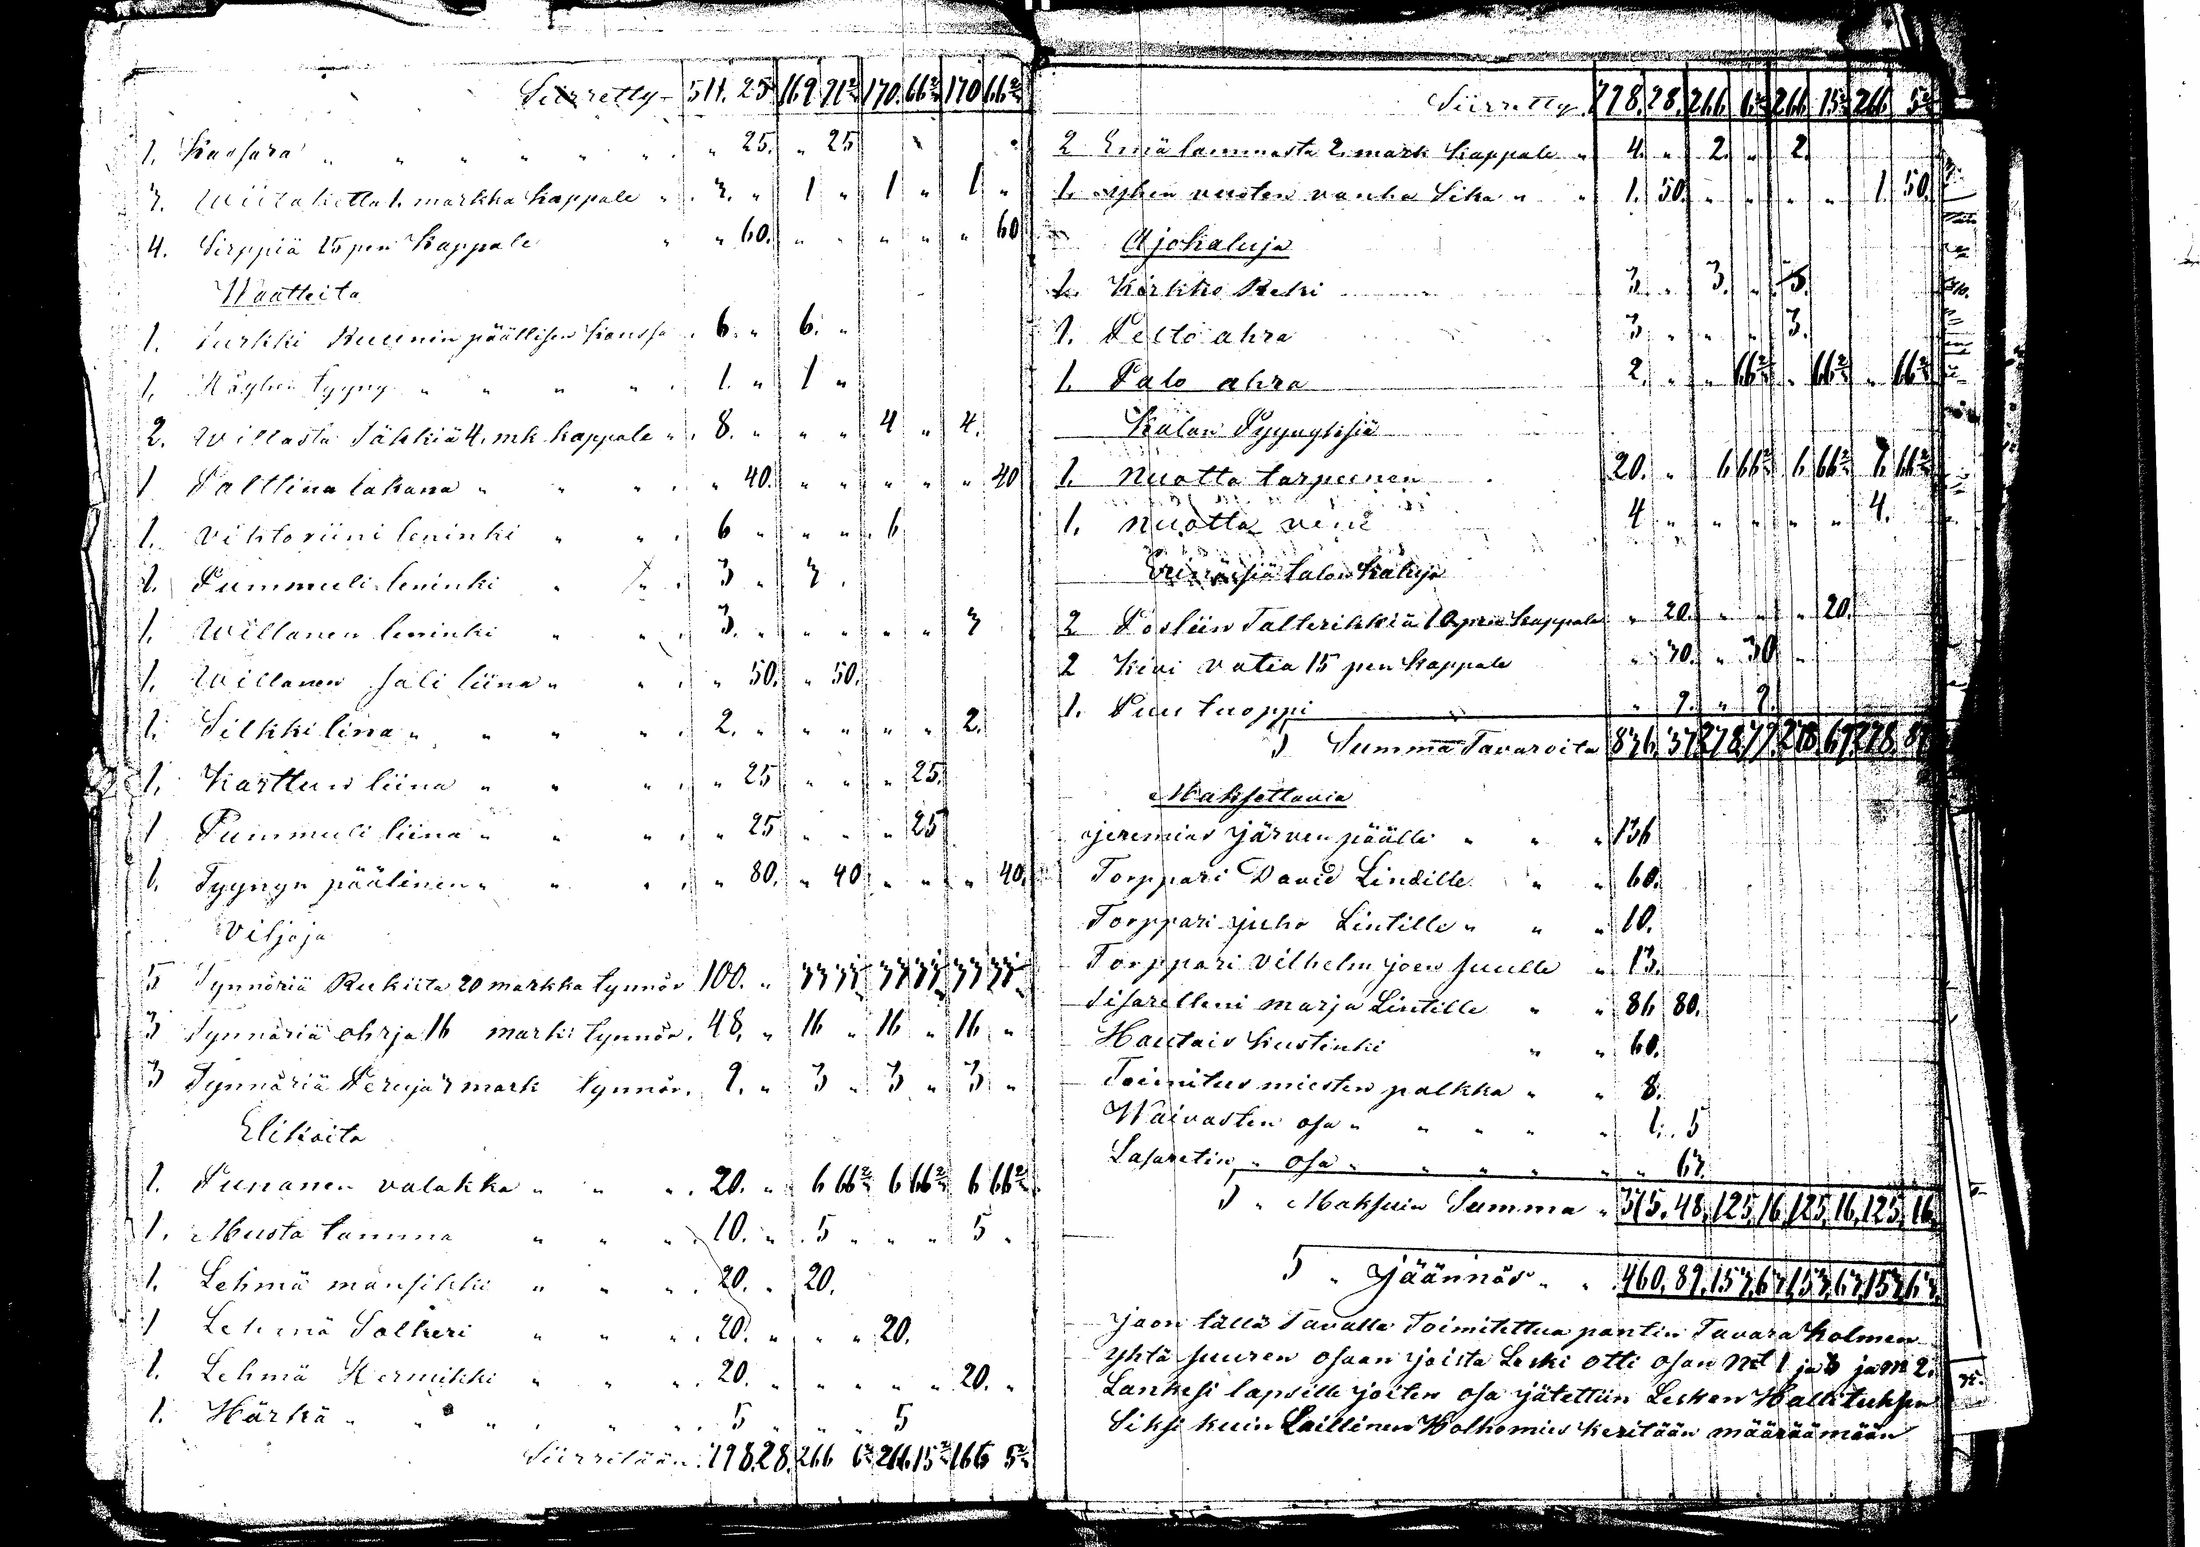 Siirretty 511. 25 169 71 2/3 170. 66 2/3 170 66 2/3
1. Kassara " " 25. " 25
3. Wiitaketta 1. markka kappale " 3. " 1 " 1 " 1 "
4. Sirppiä 15 pen kappale " 60. " " " " " 60
Waatteita
1. Turkki Ruunin päällisen kanssa 6. " 6. "
1. Höyhen tyyny " " 1. " 1 "
2. Willasta Säkkiä 4. mk kappale " 8. " " " 4 " 4.
1 Palttina lakana " " 40. " " " " " 40
1. Viktoriini leninki " 6 " " " 6
1. Pummuli leninki " 3 " 3
1. Willanen leninki " 3. " " " " " 3
1. Willanen sali liina " " 50. " 50.
1. Silkki lina " 2. " " " " " 2.
1. Karttun liina " " 25 " " " 25.
1 Pummuli liina " " 25 " " " 25
1. Tyynyn päälinen " " 80. " 40 " " " 40.
Viljoja
5 Tynnöriä Rukiita 20 markka tynnör 100. " 33 33 1/3 33 33 1/3 33 33 1/3
3 Tynnäriä ohrja 16 mark: tynnör. 48. " 16 " 16 " 16 "
3 Tynnäriä Peruja 3 mark tynnör. 9. " 3 " 3 " 3 "
Elikoita
1. Punanen valakka " 20. " 6 66 2/3 6 66 2/3 6 66 2/3
1. Musta tamma " 10. " 5 " " " 5 "
1. Lehmä mansikki " 20. " 20.
1 Lehmä Salkeri " 20. " " " 20.
1. Lehmä Hermikki " 20. " " " " " 20. "
1. Härkä " 5 " " " 5
Siirretään: 798.28. 266 6 2/3 266 15 2/3 266 5 2/3
Siirretty 798. 28. 266 6 2/3 266 15 2/3 266 5 2/3
2 Emä lammasta 2. mark kappale " 4. " 2. " 2.
1. yhen vuoten vanha Sika " 1. 50. " " " " 1. 50.
Ajokaluja
1. Kirkko Reki 3. " 3. "
1. Pelto ahra 3 " " " 3.
1. Palo ahra 2. " " 66 2/3 " 66 2/3 " 66 2/3
Kalan Pyynyksiä
1. nuotta tarpeinen 20. " 6 66 2/3 6 66 2/3 6 66 2/3
1. nuotta vene 4 " " " " " 4.
Erinäisiä talon kaluja
2 Posliin Talterikkiä 10 pen kappale " 20. " " " 20.
2 Kivi vatia 15 pen kappale " 30. " 30 "
1. Puu tuoppi " 9. " 9.
S Summa Tavaroita 836. 37 278.77. 278 69 278. 89
Maksettavia
jeremias järven päälle " " 136
Torppari David Lindille " " 60.
Torppari juho Lintille " " 10.
Torppari vilhelm joen suulle " 13.
Sisarelleni marja Lintille " " 86 80.
Hautais kustinki " " 60.
Toimitus miesten palkka " " 8.
Waivasten osa " " " 1. 5
Lasaretin " osa " " " 63.
S " Maksuin Summa " 375. 48. 125 16. 125. 16. 125. 16.
S " jäännös " " 460. 89. 153. 63 153. 63. 153 63.
jaon tällä Tavalla Toimitettua pantin Tavara Kolmen
yhtä suuren osaan joista Leski otti osan No 1 ja 3 ja no 2.
Lankesi lapsille joiten osa jätettiin Lesken Hallituksen
Siksi kuin Laillinen Holhomies keritään määräämään